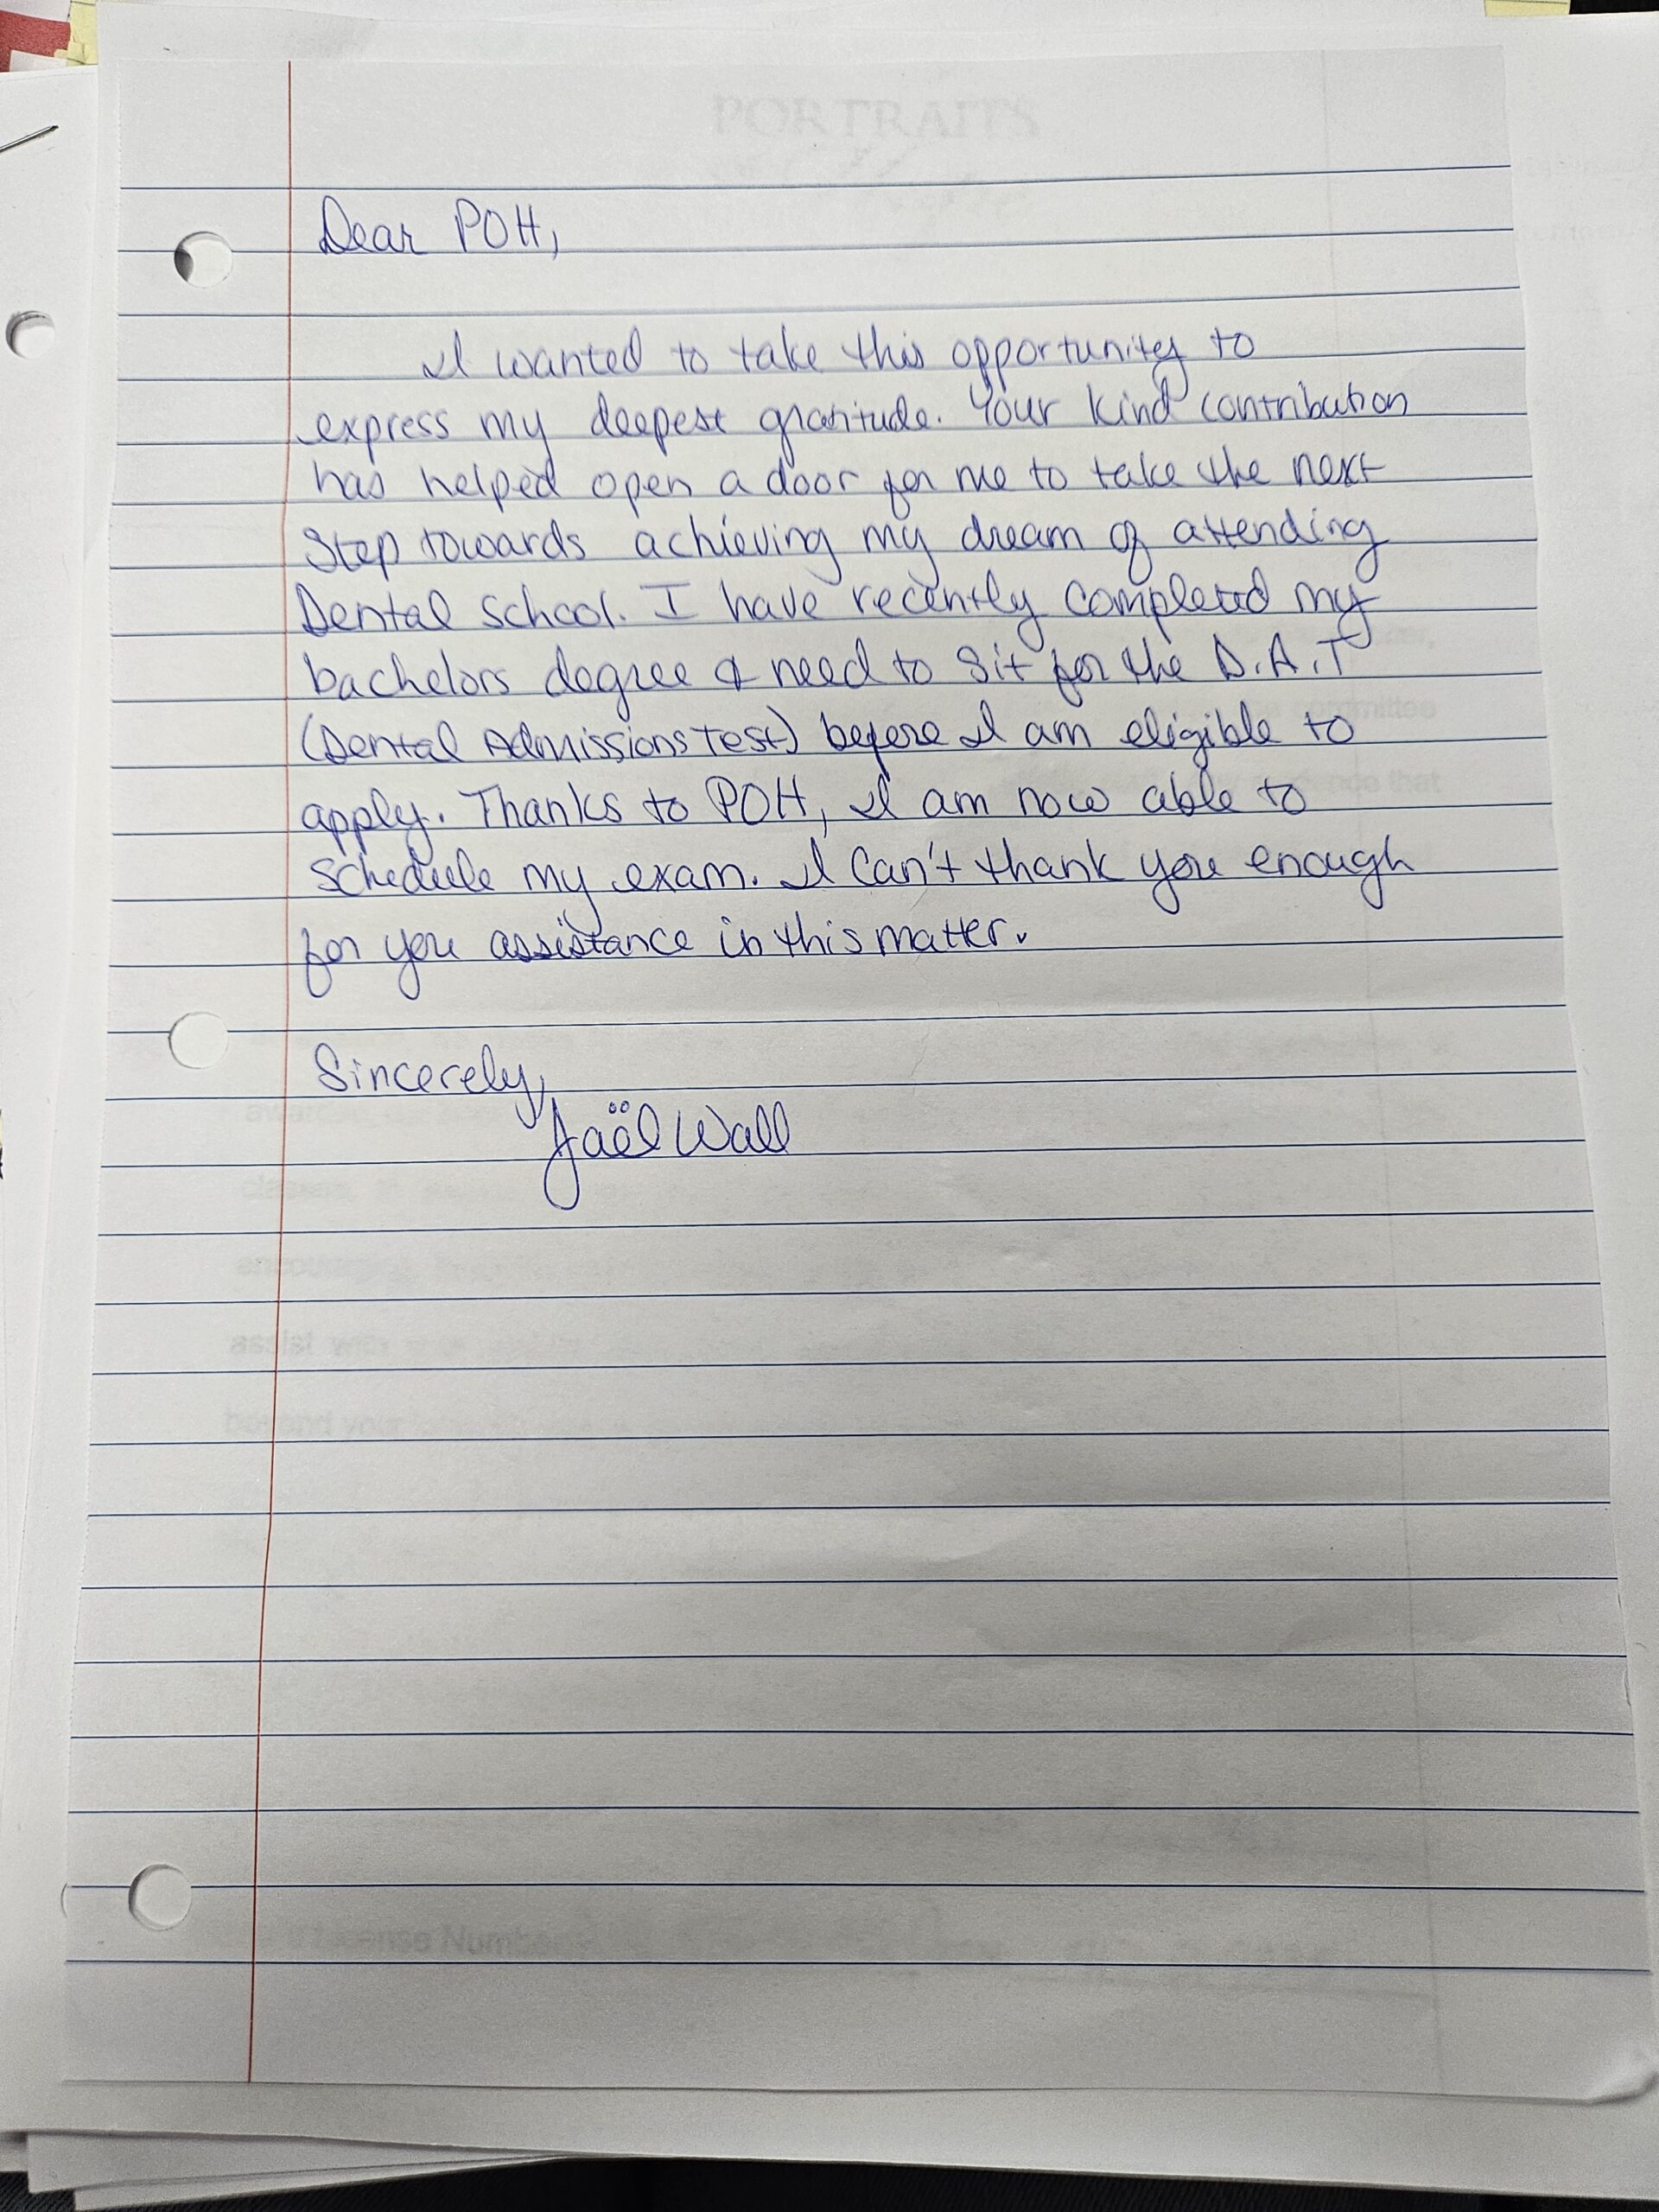 PORTRAITS
Dear POH,
I wanted to take this opportunity to
express my deepest gratitude. Your kind contribution
has helped open a door for me to take the next
step towards achieving my dream of attending
Dental School. I have recently completed my
bachelors degree & need to sit for the D.A.T
(Dental Admissions Test) before I am eligible to
apply. Thanks to POH, I am now able to
schedule my exam. I can't thank you enough
for you assistance in this matter.
Sincerely,
Jaël Wall
committee
that
encouraging
assist
your
License Number